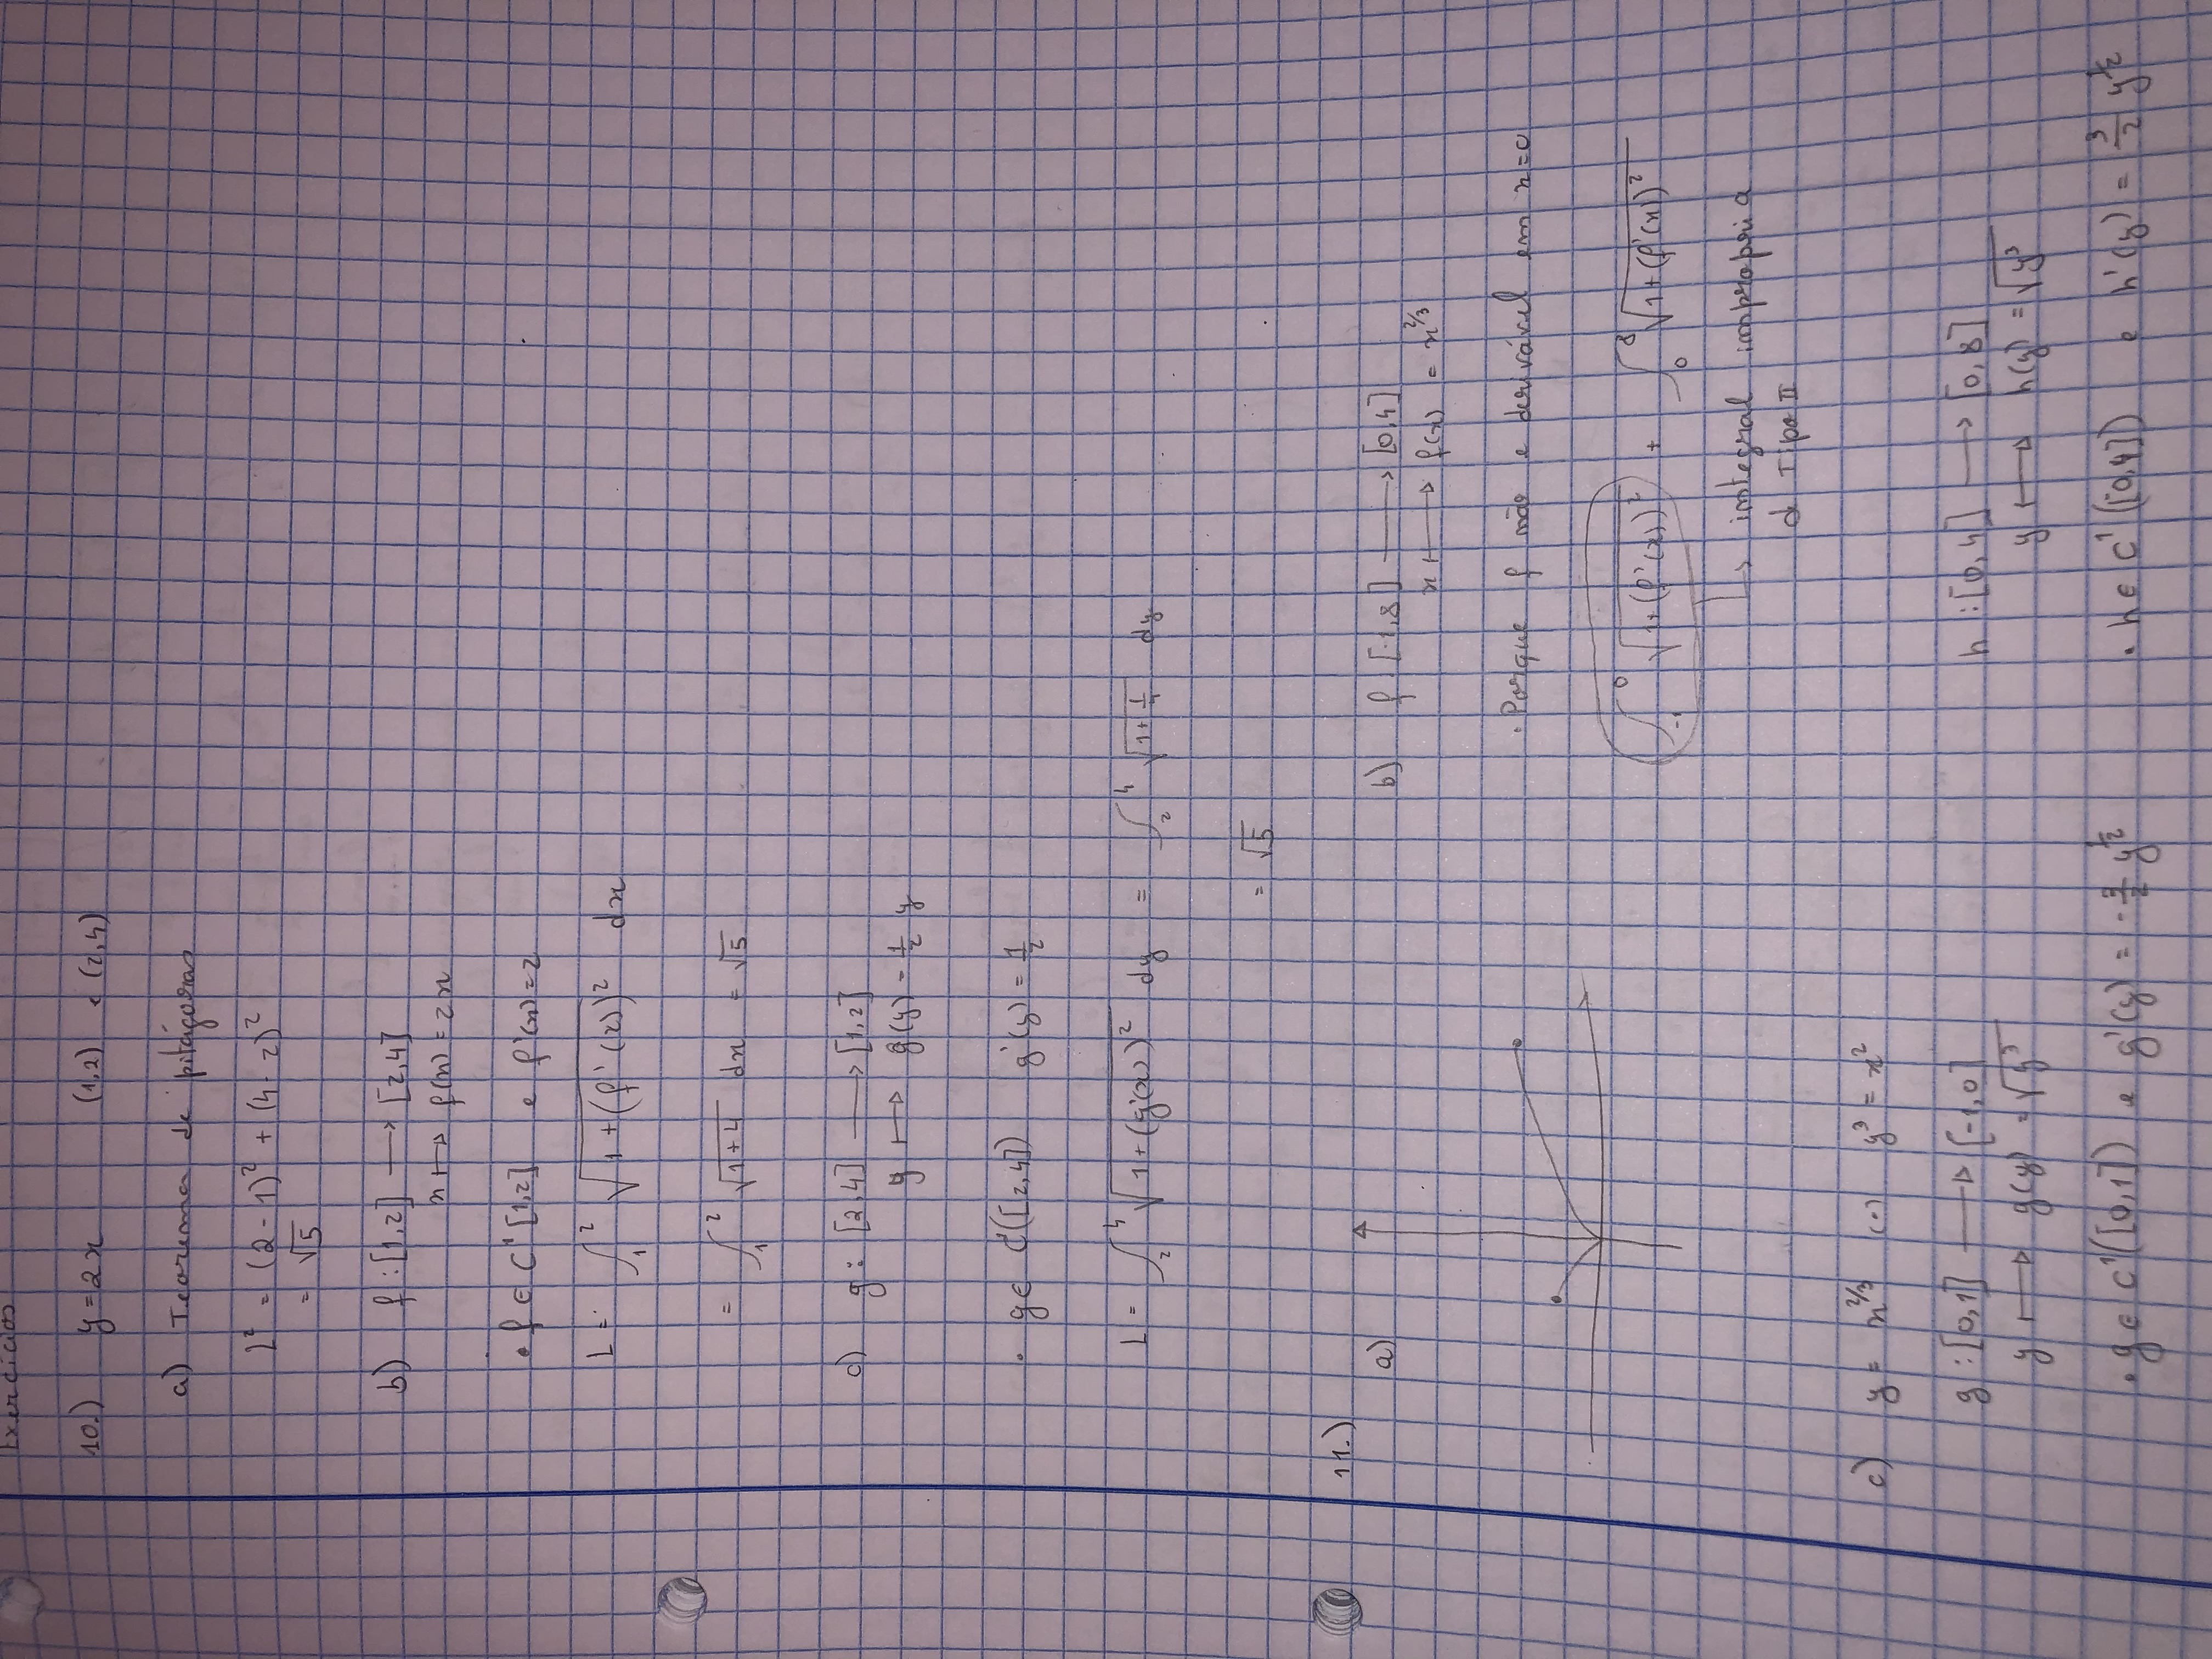 Exercicios
10.) y = 2x (1,2) e (2,4)
a) Teorema de pitágoras
L² = (2-1)² + (4-2)²
= √5
b) f : [1,2] → [2,4]
x ↦ f(x) = 2x
• f ∈ C¹ [1,2] e f'(x) = 2
L = ∫₁² √(1+(f'(x))²) dx
= ∫₁² √(1+4) dx = √5
c) g : [2,4] → [1,2]
y ↦ g(y) = 1/2 y
• g ∈ C¹([2,4]) g'(y) = 1/2
L = ∫₂⁴ √(1+(g'(x))²) dy = ∫₂⁴ √(1+1/4) dy
= √5
11.)
a)
b) f [-1,8] → [0,4]
x ↦ f(x) = x^2/3
• Porque f não e derivável em x=0
∫₋₁⁰ √(1+(f'(x))²) + ∫₀⁸ √(1+(f'(x))²)
↳ integral impropria
de Tipo II
c) y = x^2/3 (=) y³ = x²
g : [0,1] → [-1,0]
y ↦ g(y) = √y³
• g ∈ C¹([0,1]) e g'(y) = -3/2 y^1/2
h : [0,4] → [0,8]
y ↦ h(y) = √y³
• h ∈ C¹([0,4]) e h'(y) = 3/2 y^1/2